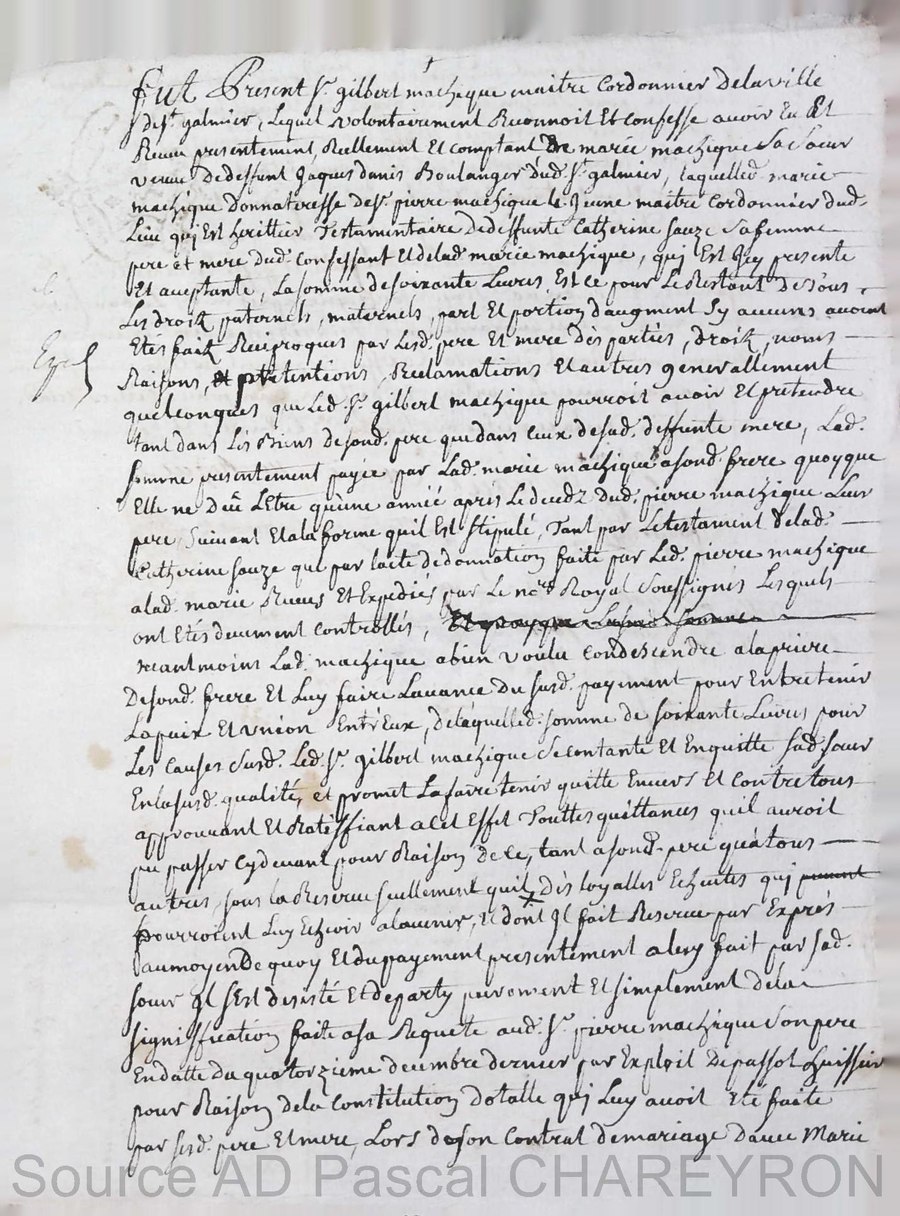 fut Present Sr. gilbert machique maitre Cordonnier Delaville
de St. galmier, Lequel volontairement Reconnoit Et Confesse avoir Eu Et
Receu presentement, Reellement Et Comptant De marie machique Sa Soeur
veuve Dedeffunt Jaques danis Boulanger dud. St. galmier, Laquelled. marie
machique Donnateresse de Sr. pierre machique le Jeune maitre Cordonnier dud.
Lieu qui Est heritier Testamentaire Dedeffunte Catherine Sauze Safemme
pere et mere dud. Confessant Et delad. marie machique, qui Est Icy presente
Et aceptante, La somme desoixante Livres, Est Ce pour Le Restant De tous
Les droits paternels, maternels, part Et portion daugment Sy aucuns avoient
Etes faits Reciproques par Lesd. pere Et mere dès parties, droits, noms
Expé.
Raisons, et pretentions, Reclamations Et autres generallement
quelconques que Led. Sr. gilbert machique pourroit avoir Et pretendre
tant dans Les Biens desond. pere que dans Ceux desad. deffunte mere, Lad.
somme presentement payée par Lad. marie machique asond. frere quoyque
Elle ne Dût LEtre qu'une année après Ledecedz Dud. pierre machique Leur
pere, Suivant Et ala forme quil Est Stipulé, Tant par Letestament delad.
Catherine Sauze que par lacte dedonnation faite par Led. pierre machique
alad. marie Receus Et Expediés par Le nore. Royal Soussignés Lesquels
ont Etés deument Controllés, Et quoyque Lad. Somme
neantmoins Lad. machique abien voulu Condescendre alapriere
Desond. frere Et Luy faire Lavance du susd. payement pour Entretenir
Lapaix Et vnion Entr'Eux, delaquelled. somme de soixante Livres pour
Les Causes Susd. Led. Sr. gilbert machique Se Contante Et Enquitte Sad. Soeur
Enlasusd. qualité, et promet Lafaire tenir quitte Envers Et Contre tous
approuvant Et Ratiffiant acet Effet Touttes quittances quil auroit
pu passer Cydevant pour Raison de Ce, tant asond. pere qu'atous
autres, sous la Reserve seullement quil dès loyalles Echeutes qui
pourroient Luy Echoir alavenir, Et dont Il fait Reserve par Exprès
aumoyen De quoy Et du payement presentement aluy fait par Sad.
soeur Il s'Est desisté Et departy purement Et simplement dela
signiffication faite asa Requete aud. Sr. pierre machique Son pere
Endatte du quatorzieme decembre dernier par Exploit De passot huissier
pour Raison dela Constitution dotalle qui Luy avoit Eté faite
par sesd. pere Et mere, Lors deson Contrat demariage d'avec Marie
Source AD Pascal CHAREYRON